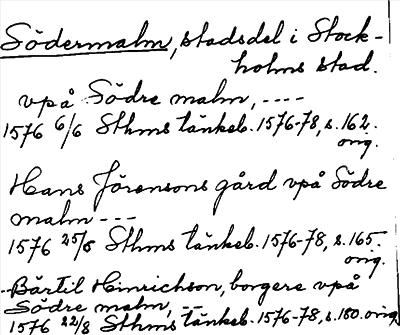 Södermalm, stadsdel i Stock-
holms stad.
vpå Södre malm, ----
1576 6/6 Sthms tänkeb. 1576-78, s. 162.
orig.
Hans Jörensons gård vpå Södre
malm ---
1576 25/5 Sthms tänkeb. 1576-78, s. 165.
orig.
Bärtil Hinrichson, borgere vpå
Södre malm, --
1576 22/8 Sthms tänkeb. 1576-78, s. 180. orig.